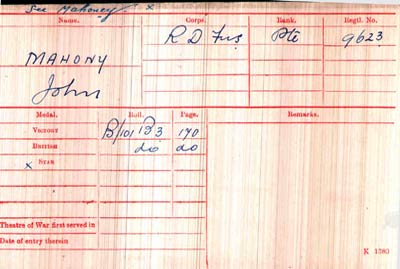 See Mahoney x
Name. Corps. Rank. Regtl. No.
MAHONY R D Fus Pte 9623
John
Medal. Roll. Page. Remarks.
VICTORY B/101 B3 170
BRITISH do do
x STAR
Theatre of War first served in
Date of entry therein
K 1380